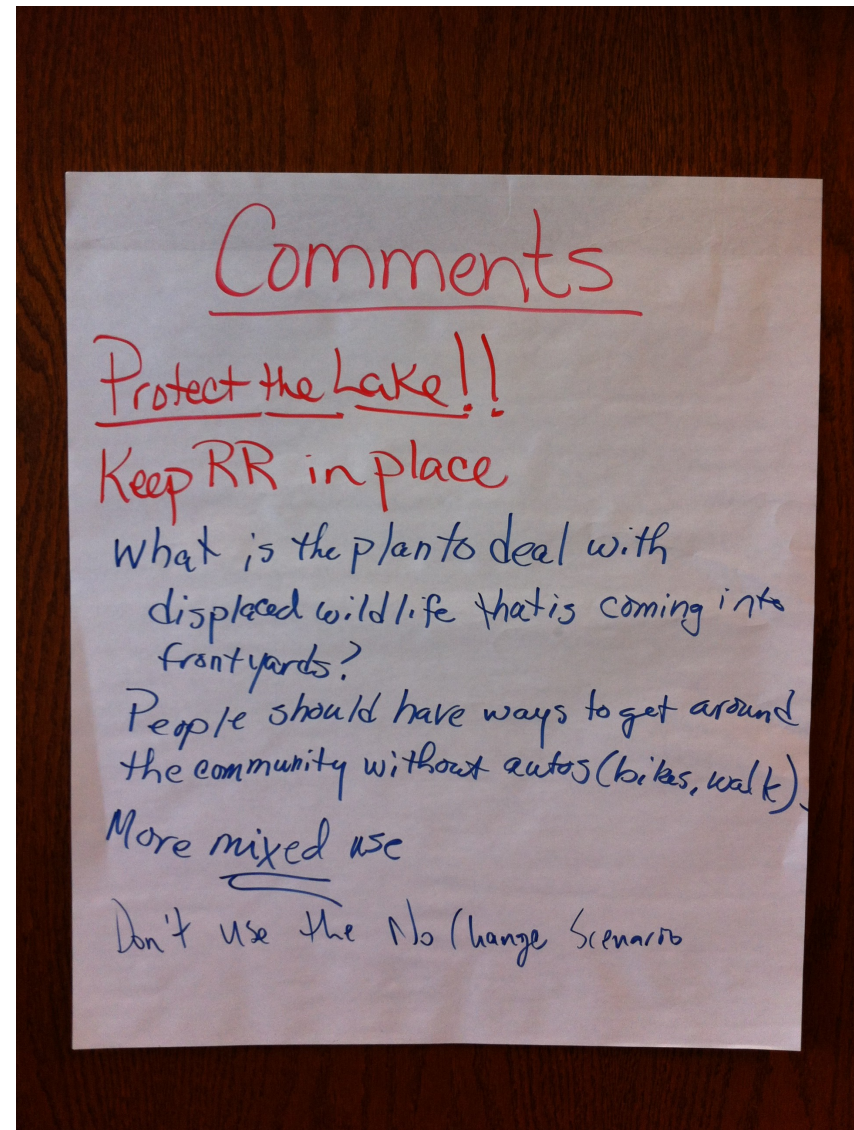 Comments
Protect the Lake!!
Keep RR in place
What is the plan to deal with
displaced wildlife that is coming into
front yards?
People should have ways to get around
the community without autos (bikes, walk).
More mixed use
Don't use the No Change Scenario